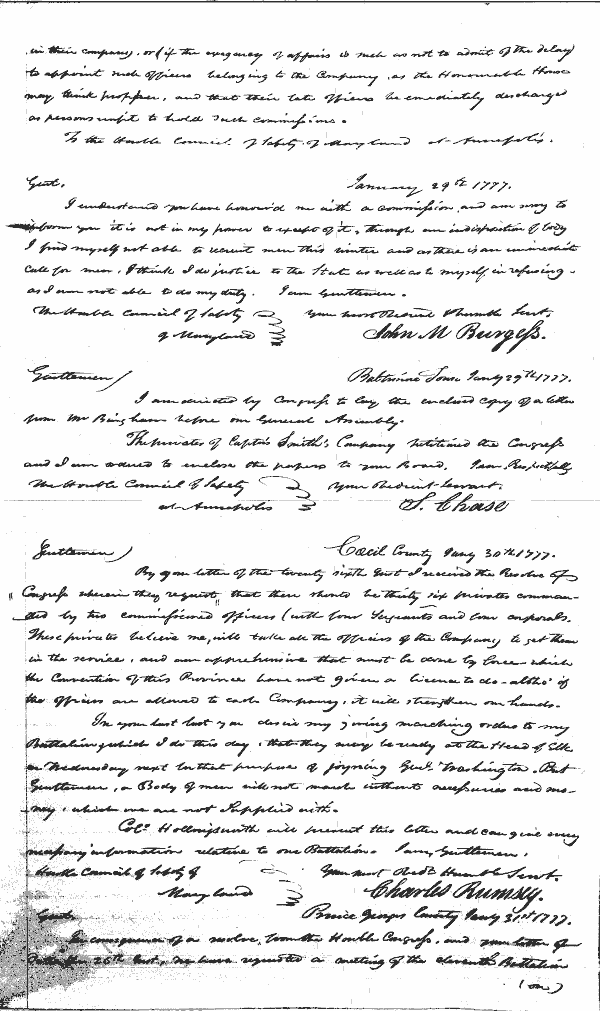 in their company, or (if the exegency of affairs is such as not to admit of the delay
to appoint such officers belonging to the Company, as the Honourable House
may think propper, and that their late officers be emediately descharged
as persons unfit to hold such commissions.
To the Honble Council of Safety of Maryland at Annapolis.
Gent. January 29th 1777.
I understand you have honour'd me with a commission, and am sorry to
inform you it is not in my power to except of it, through an indisposition of body
I find myself not able to recruit men this winter and as there is an immediate
call for men, I think I do justice to the State as well as to myself in refusing
as I am not able to do my duty. I am Gentlemen.
The Honble Council of Safety Your most Obedient Humble Servt.
of Maryland John M Burgess.
Gentlemen Baltimore Town Jany 29th 1777.
I am directed by Congress to lay the enclosed copy of a letter
from Mr Bingham before our General Assembly.
The privates of Captn Smith's Company petitioned the Congress
and I am ordered to enclose the papers to your Board. I am Respectfully
The Honble Council of Safety Your Obedient Servant.
at Annapolis S. Chase
Gentlemen Cecil County Jany 30th 1777.
By your letter of the twenty sixth Inst I received the Resolve of
Congress wherein they request "that there should be thirty six privates comman-
ded by two commissioned officers (with four Sergeants and four corporals.
These privates believe me, will take all the officers of the Company to get them
in the service, and am apprehensive that must be done by force which
the Convention of this Province have not given a licence to do - altho' if
the officers are allowed to each Company, it will strengthen our hands.
In your last you desire my giving marching orders to my
Battalion which I do this day, that they may be ready at the Head of Elk
on Wednesday next for that purpose of joyning Genl Washington. But
Gentlemen, a Body of men will not march without necessaries and mo-
ney, which we are not Supplied with.
Colo Hollingsworth will present this letter and can give every
necessary information relative to our Battalion. I am, Gentlemen,
Honble Council of Safety of Your most Obedt Humble Servt.
Maryland Charles Rumsey.
Gent. Prince Georges County Jany 31st 1777.
In consequence of a resolve, from the Honble Congress, and your letter of
26th Inst, we have requested a meeting of the eleventh Battalion
(on)